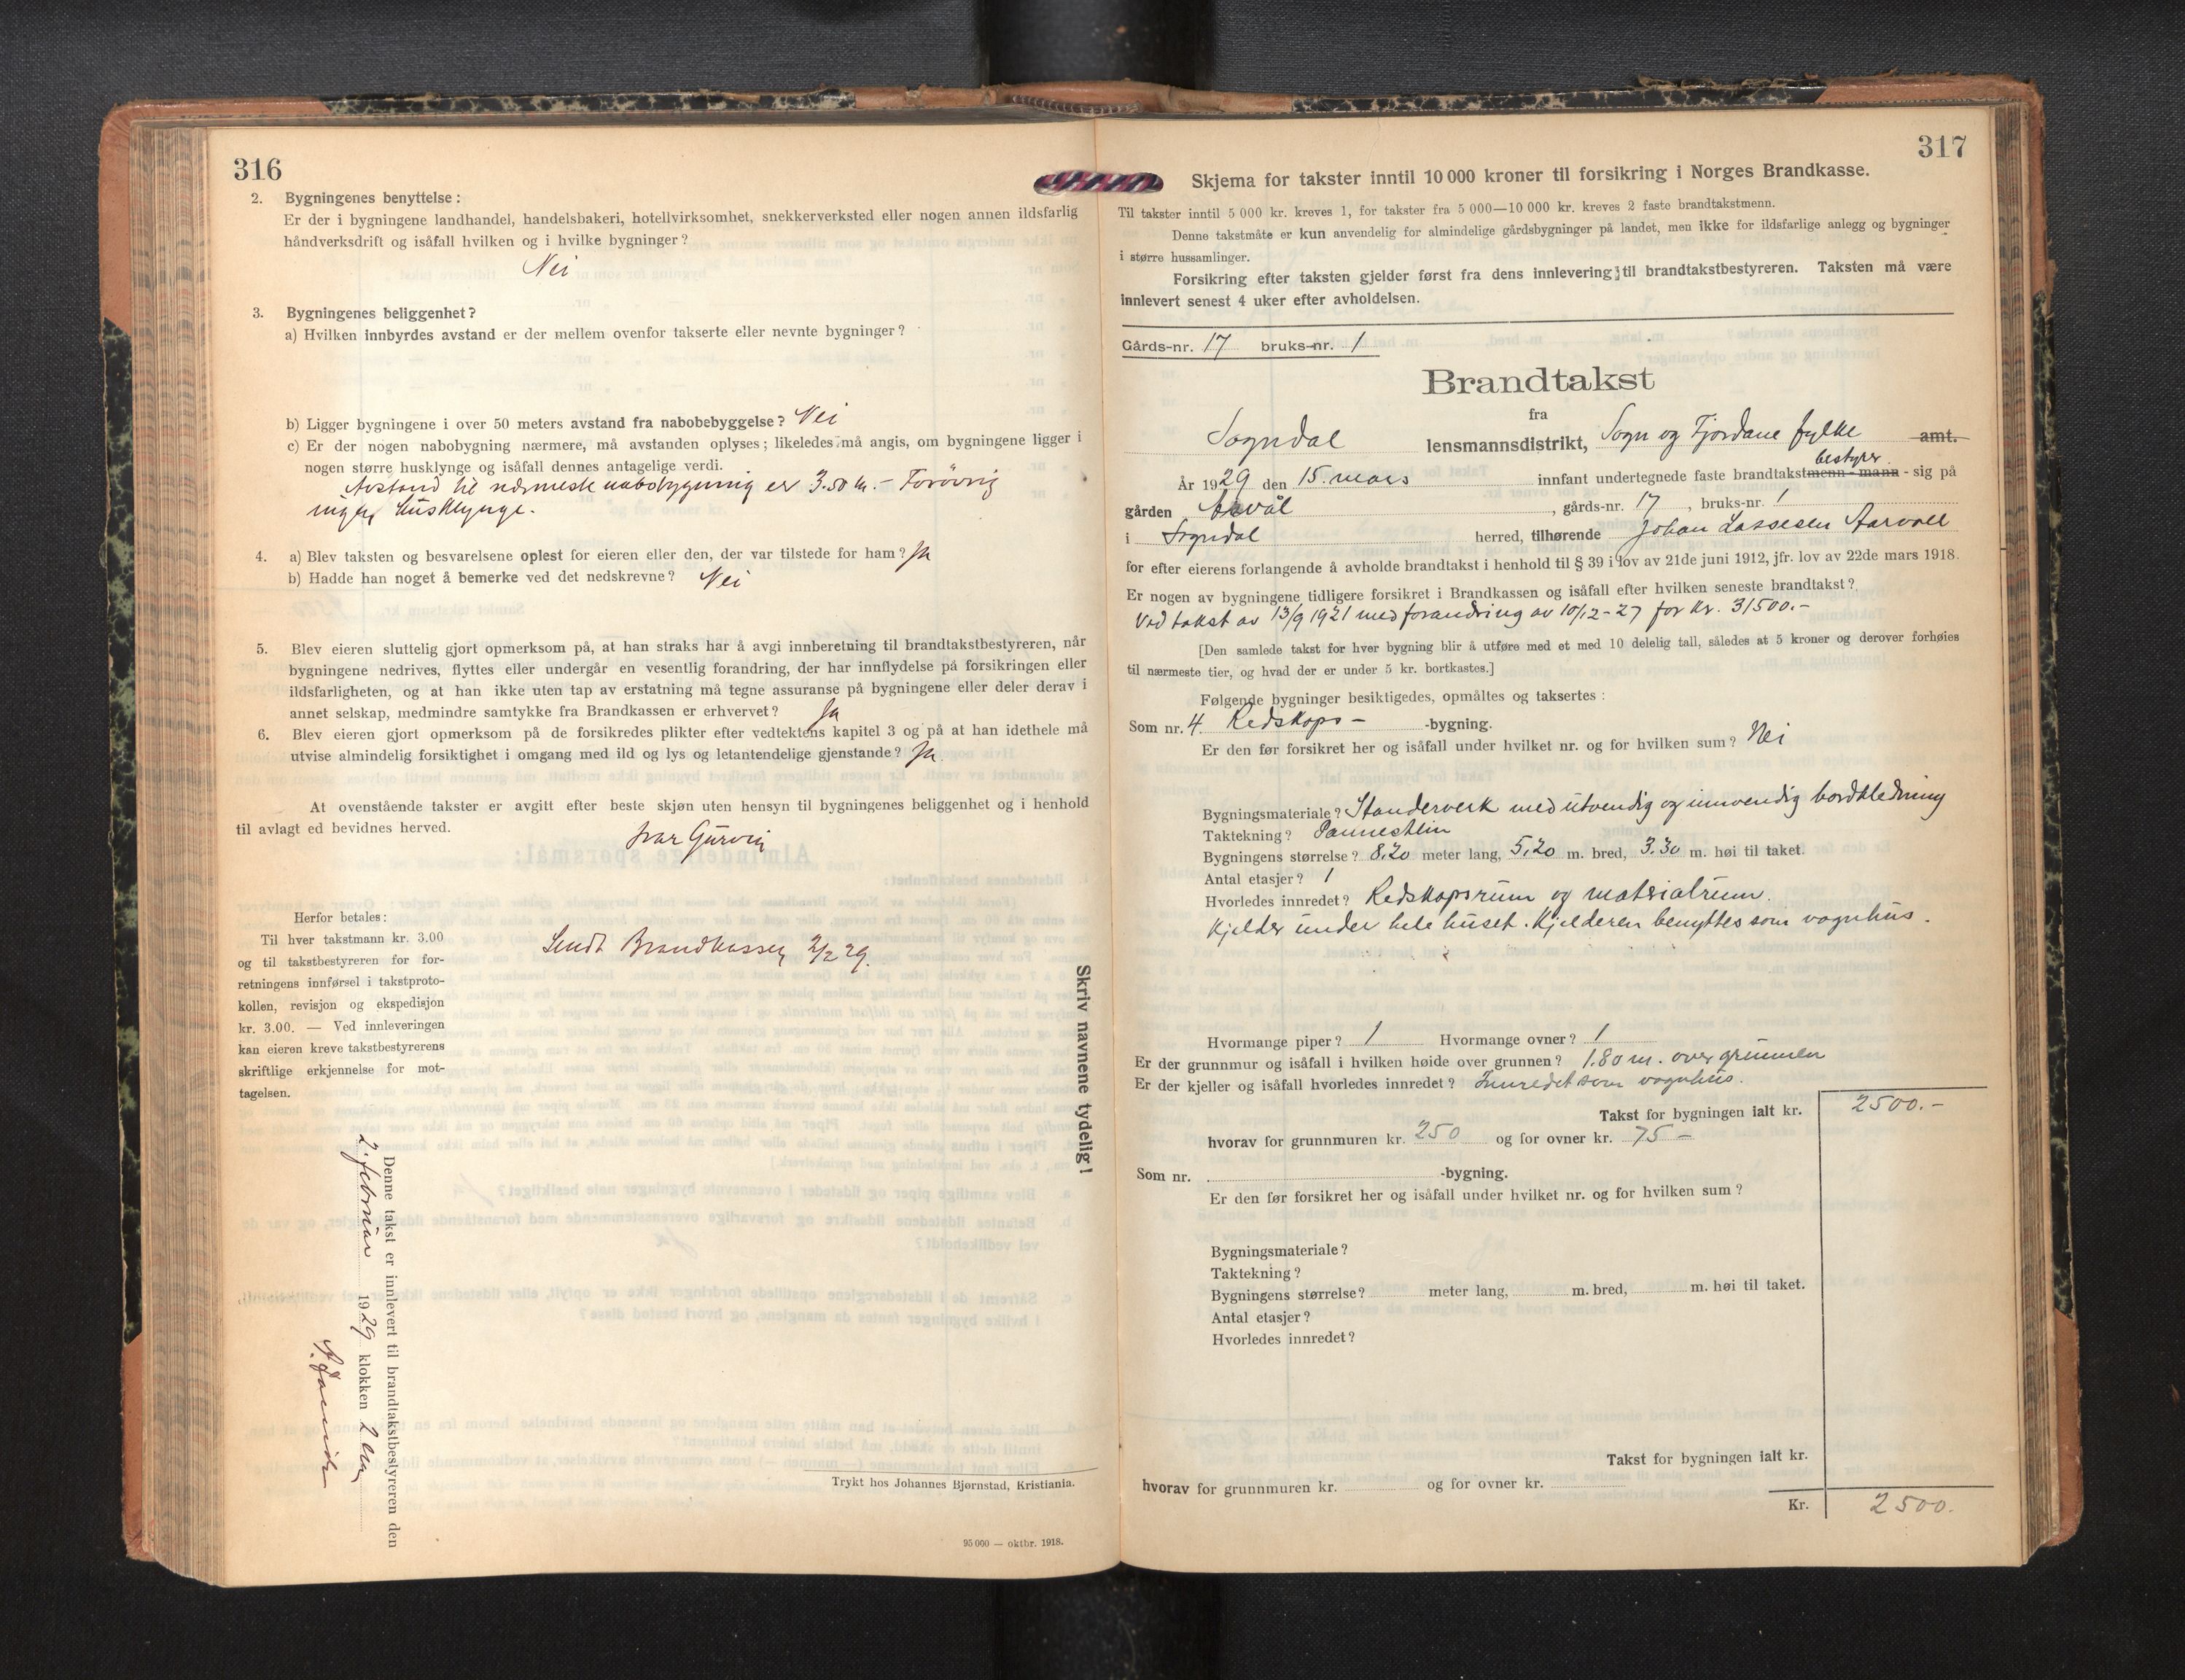 316
2. Bygningenes benyttelse :
Er der i bygningene landhandel, handelsbakeri, hotellvirksomhet, snekkerverksted eller nogen annen ildsfarlig
håndverksdrift og isåfall hvilken og i hvilke bygninger?
Nei
3. Bygningenes beliggenhet?
a) Hvilken innbyrdes avstand er der mellem ovenfor takserte eller nevnte bygninger?
b) Ligger bygningene i over 50 meters avstand fra nabobebyggelse? Nei
c) Er der nogen nabobygning nærmere, må avstanden oplyses; likeledes må angis, om bygningene ligger i
nogen større husklynge og isåfall dennes antagelige verdi.
Avstand til nærmeste nabobygning er 3.50 m. - Forövrig
ingen husklynge.
4. a) Blev taksten og besvarelsene oplest for eieren eller den, der var tilstede for ham? Ja
b) Hadde han noget å bemerke ved det nedskrevne? Nei
5. Blev eieren sluttelig gjort opmerksom på, at han straks har å avgi innberetning til brandtakstbestyreren, når
bygningene nedrives, flyttes eller undergår en vesentlig forandring, der har innflydelse på forsikringen eller
ildsfarligheten, og at han ikke uten tap av erstatning må tegne assuranse på bygningene eller deler derav i
annet selskap, medmindre samtykke fra Brandkassen er erhvervet? Ja
6. Blev eieren gjort opmerksom på de forsikredes plikter efter vedtektens kapitel 3 og på at han idethele må
utvise almindelig forsiktighet i omgang med ild og lys og letantendelige gjenstande? Ja.
At ovenstående takster er avgitt efter beste skjøn uten hensyn til bygningenes beliggenhet og i henhold
til avlagt ed bevidnes herved.
Ivar Gurvin
Herfor betales:
Til hver takstmann kr. 3.00
og til takstbestyreren for for-
retningens innførsel i takstproto-
kollen, revisjon og ekspedisjon
kr. 3.00. — Ved innleveringen
kan eieren kreve takstbestyrerens
skriftlige erkjennelse for mot-
tagelsen.
Sendt Brandkassen 2/2 29.
Skriv navnene tydelig!
Denne takst er innlevert til brandtakstbestyreren den
2. februar 1929 klokken 2
Trykt hos Johannes Bjørnstad, Kristiania.
95 000 — oktbr. 1918.
317
Skjema for takster inntil 10 000 kroner til forsikring i Norges Brandkasse.
Til takster inntil 5 000 kr. kreves 1, for takster fra 5 000—10 000 kr. kreves 2 faste brandtakstmenn.
Denne takstmåte er kun anvendelig for almindelige gårdsbygninger på landet, men ikke for ildsfarlige anlegg og bygninger
i større hussamlinger.
Forsikring efter taksten gjelder først fra dens innlevering til brandtakstbestyreren. Taksten må være
innlevert senest 4 uker efter avholdelsen.
Gårds-nr. 17 bruks-nr. 1
Brandtakst
fra
Sogndal lensmannsdistrikt, Sogn og Fjordane fylke amt.
bestyrer
År 1929 den 15. mars innfant undertegnede faste brandtakstmenn - mann - sig på
gården Årvål, gårds-nr. 17, bruks-nr. 1
i Sogndal herred, tilhørende Johan Lassesen Aarvoll
for efter eierens forlangende å avholde brandtakst i henhold til § 39 i lov av 21de juni 1912, jfr. lov av 22de mars 1918.
Er nogen av bygningene tidligere forsikret i Brandkassen og isåfall efter hvilken seneste brandtakst?
Ved takst av 13/9 1921 med forandring av 10/12-27 for kr. 31500.-
[Den samlede takst for hver bygning blir å utføre med et med 10 delelig tall, således at 5 kroner og derover forhøies
til nærmeste tier, og hvad der er under 5 kr. bortkastes.]
Følgende bygninger besiktigedes, opmåltes og taksertes :
Som nr. 4. Redskaps- -bygning.
Er den før forsikret her og isåfall under hvilket nr. og for hvilken sum? Nei
Bygningsmateriale? Standerverk med utvendig og innvendig bordkledning
Taktekning? Pannesten
Bygningens størrelse? 8.20 meter lang, 5.20 m. bred, 3.30 m. høi til taket.
Antal etasjer? 1
Hvorledes innredet? Redskapsrum og matrialrum.
Kjelder under hele huset. Kjelderen benyttes som vognhus.
Hvormange piper? 1 Hvormange ovner? 1
Er der grunnmur og isåfall i hvilken høide over grunnen? 1.80 m. over grunnen
Er der kjeller og isåfall hvorledes innredet? Innredet som vognhus.
Takst for bygningen ialt kr. 2500.-
hvorav for grunnmuren kr. 250 og for ovner kr. 75 -
Som nr. -bygning.
Er den før forsikret her og isåfall under hvilket nr. og for hvilken sum?
Bygningsmateriale?
Taktekning?
Bygningens størrelse? meter lang, m. bred, m. høi til taket.
Antal etasjer?
Hvorledes innredet?
Takst for bygningen ialt kr.
hvorav for grunnmuren kr. og for ovner kr.
Kr. 2500.